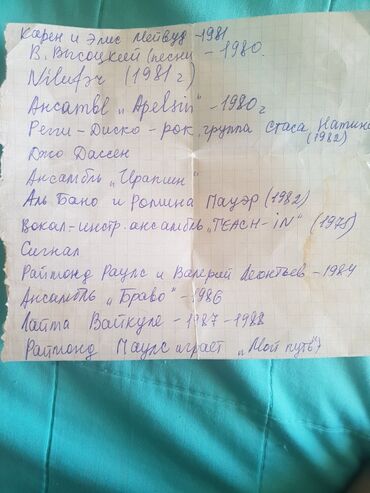 Карен и Элис Мейвуд - 1981
В. Высоцкий (песни) - 1980.
Nilufər (1981 г)
Ансамбль „Apelsin" - 1980 г
Регги - Диско - рок, группа Стаса Намина
(1982)
Джо Дассен
Ансамбль „Ирапшен"
Аль Бано и Ромина Пауэр (1982)
Вокал-инстр. ансамбль „TEACH-iN" (1975)
Сигнал
Раймонд Раулс и Валерий Леонтьев - 1984
Ансамбль „Браво" - 1986
Лайма Вайкуле - 1987 - 1988
Раймонд Паулс играет „Мой путь"